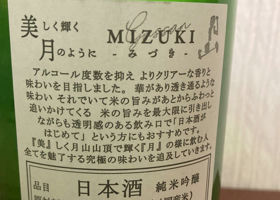 美しく輝く
月のように
MIZUKI
-みづき-
Gassan
アルコール度数を抑え よりクリアーな香りと
味わいを目指しました。 華があり透き通るような
味わい それでいて米の旨みがあとからふわっと
追いかけてくる 米の旨みを最大限に引き出し
ながらも透明感のある飲み口で「日本酒が
はじめて」という方にもおすすめです。
『美』しく月山山頂で輝く『月』の様に飲む人
全てを魅了する究極の味わいを追及していきます。
品目 日本酒 純米吟醸